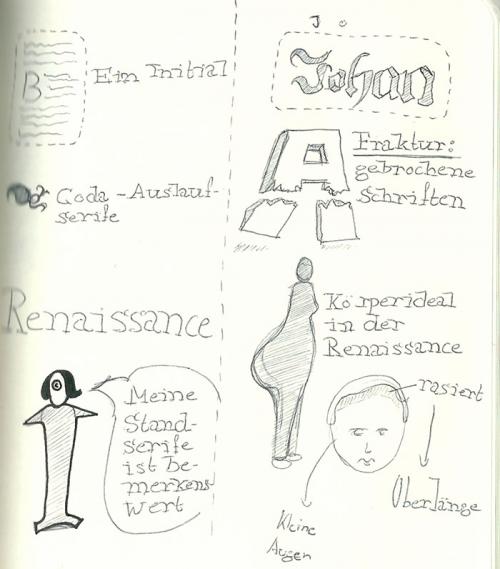 B
Ein Initial
Coda - Auslauf-
serife
Renaissance
Meine
Stand-
serife
ist be-
merkens-
wert
J
Johan
A
Fraktur:
gebrochene
Schriften
Körperideal
in der
Renaissance
rasiert
Oberlänge
Kleine
Augen